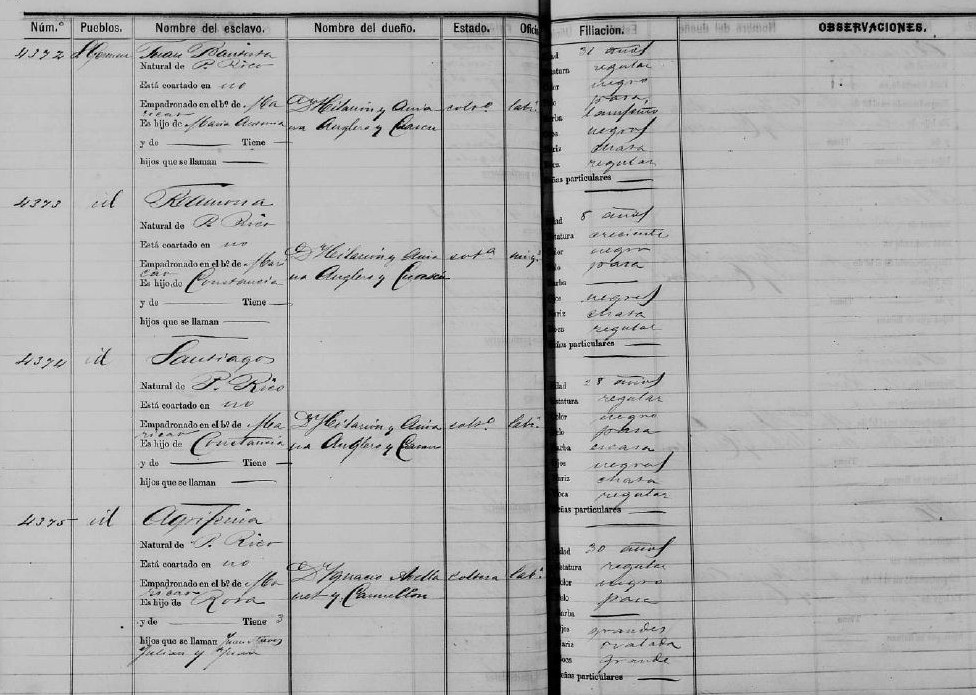 Núm.º Pueblos. Nombre del esclavo. Nombre del dueño. Estado. Ofici Filiación. OBSERVACIONES.
4372 Juan Bautista
Natural de P. Rico
Está coartado en no
Empadronado en el b.º de Ma
ricao
Es hijo de María
y de — Tiene —
hijos que se llaman —
D.n Hilarión y Ana
na Anglero y
solt.º
lab.r
dad 31 años
tatura regular
or negro
pasa
rba lampiño
os negros
ariz chata
oca regular
eñas particulares —
4373 id Ramona
Natural de P. Rico
Está coartado en no
Empadronado en el b.º de Mari
cao
Es hijo de Constancia
y de — Tiene —
hijos que se llaman —
D.n Hilarión y Ana
na Anglero y
solt.a
ning.º
dad 8 años
tatura creciente
olor negro
elo pasa
arba
jos negros
ariz chata
oca regular
eñas particulares —
4374 id Santiago
Natural de P. Rico
Está coartado en no
Empadronado en el b.º de Ma
ricao
Es hijo de Constancia
y de — Tiene —
hijos que se llaman —
D.n Hilarión y Ana
na Anglero y
solt.º
lab.r
dad 28 años
statura regular
olor negro
elo pasa
arba escasa
jos negros
ariz chata
oca regular
eñas particulares —
4375 id Agrifina
Natural de P. Rico
Está coartado en no
Empadronado en el b.º de Ma
ricao
Es hijo de Rosa
y de — Tiene 3
hijos que se llaman Juan
Julian y Juana
D. Ignacio
y
soltera
lab.a
dad 30 años
statura regular
olor negro
elo pasa
arba
jos grandes
ariz ovalada
oca grande
eñas particulares —